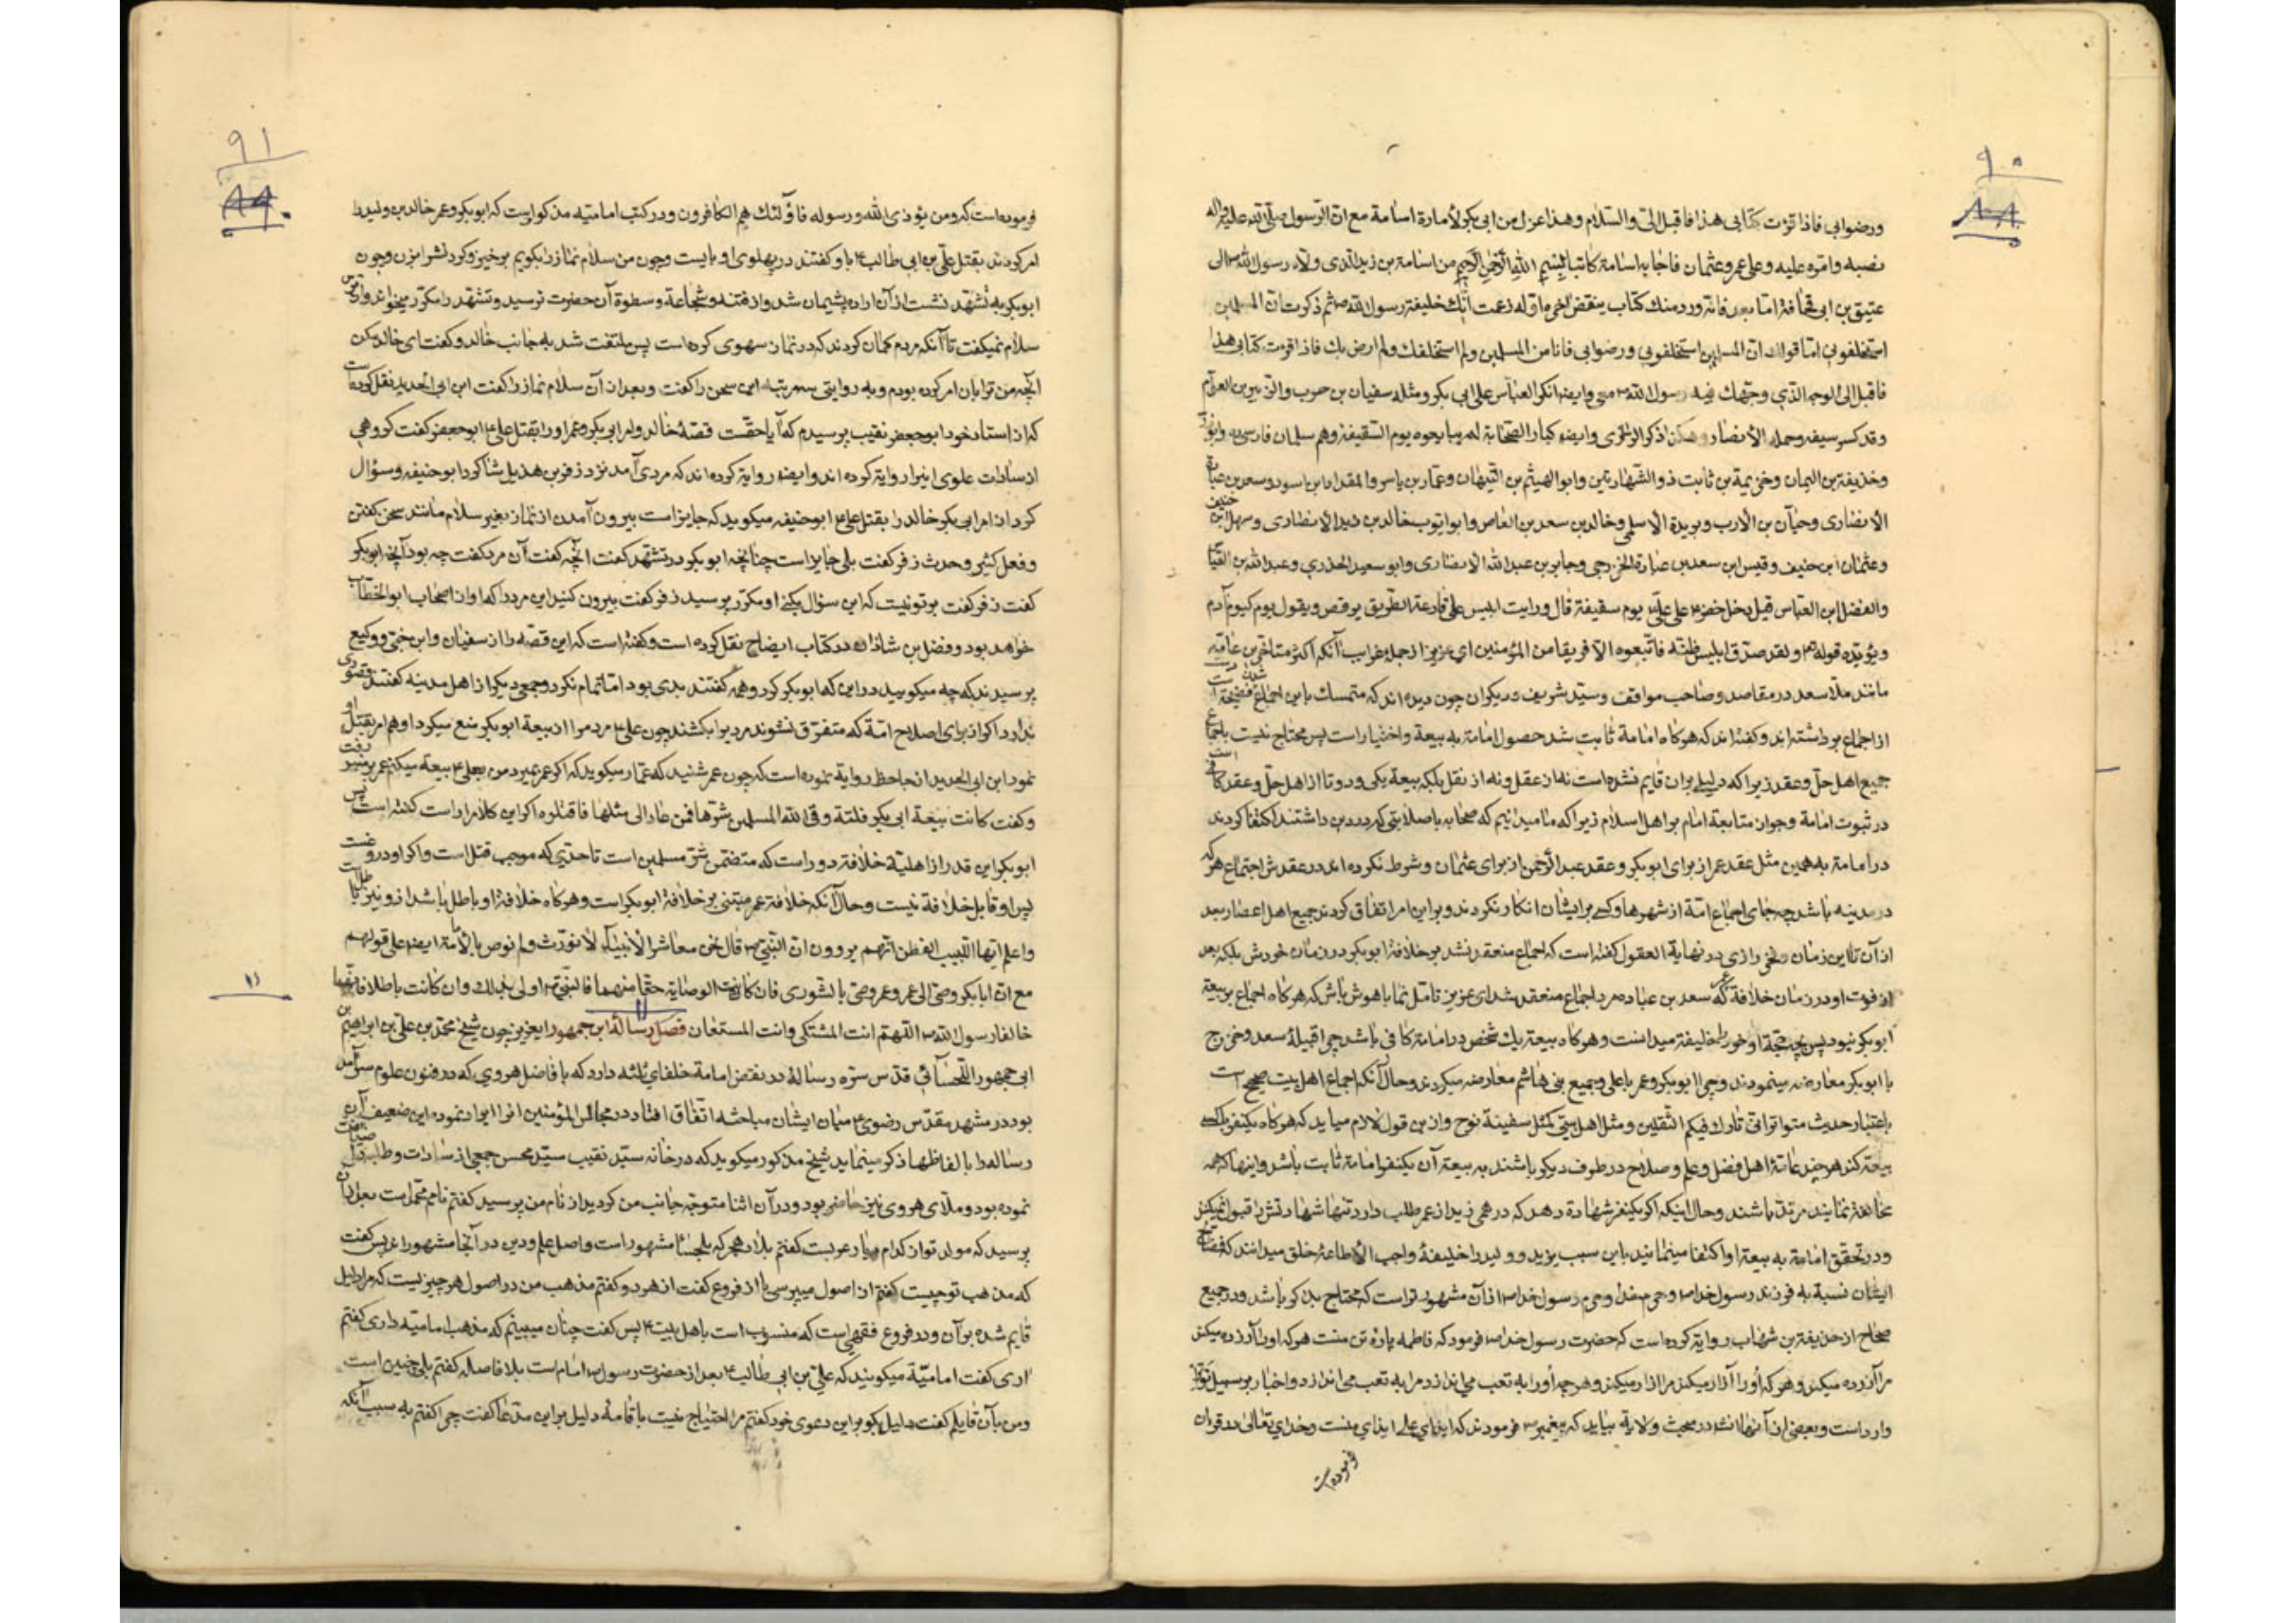 ٩٠
٨٨
ورضوا بی فاذا قرئت کتابی هذا فاقبل الیّ والسّلام وهذا عزل من ابی بکر لأمارة اسامة مع انّ الرّسول صلّی الله علیه واله
نصبه وامّره علیه وعلی عمر وعثمان فاجابه اسامة کاتبا بسم الله الرّحمن الرّحیم من اسامة بن زید الذی ولّاه رسول الله ص الی
عتیق بن ابی قحافة امّا بعد فانّه ورد منك کتاب ینقض اخره اوّله زعمت انّك خلیفة رسول الله ص ثم ذکرت انّ المسلمین
استخلفونی امّا قولك انّ المسلمین استخلفونی ورضوا بی فانا من المسلمین ولم استخلفك ولم ارض بك فاذا قرئت کتابی هذا
فاقبل الی الوجه الّذی وجّهك فیه رسول الله ص معی وایضا انکر العبّاس علی ابی بکر ومثله سفیان بن حرب والزّبیر بن العوّام
وقد کسر سیفه وجمله الأنصار وهکذا ذکر الواقدی وایضا کبار الصّحابة لم یبایعوه یوم السّقیفة وهم سلمان فارسی وابوذر
وحذیفة بن الیمان وخزیمة بن ثابت ذو الشّهادتین وابو الهیثم بن التّیهان وعمّار بن یاسر والمقداد بن اسود وسعد بن عبادة
الانصاری وحیّان بن الارب وبریدة الاسلمی وخالد بن سعد بن العاص وابو ایّوب خالد بن زید الانصاری وسهل ابن حنیف
وعثمان ابن حنیف وقیس ابن سعد بن عبادة الخزرجی وجابر بن عبدالله الانصاری وابو سعید الخدری وعبدالله بن
والفضل ابن العبّاس قیل دخل خضر علی علیّ یوم سقیفة قال ورایت ابلیس علی قارعة الطّریق یرقص ویقول یوم کیوم آدم
ویؤیّده قوله تع ولقد صدّق ابلیس ظنّه فاتّبعوه الّا فریقا من المؤمنین ای عزیز از جمله غرایب آنکه اکثر متاخّرین عامّه
مانند ملّا سعد در مقاصد وصاحب مواقف وسیّد شریف ودیکران چون دیده اند که متمسك باین اجماع فضیحة شدن است دست
از اجماع برداشته اند وکفته اند که هرکاه امامة ثابت شد حصول امامة به بیعة واختیار است پس محتاج نیست باجماع
جمیع اهل حلّ وعقد زیرا که دلیلی بران قایم نشده است نه از عقل ونه از نقل بلکه بیعة یکی ودو تا از اهل حلّ وعقد کافی است
در ثبوت امامة وجوان متابعة امام بر اهل اسلام زیرا که ما میدانیم که صحابه باصلابتی که در دین داشتند اکتفا کردند
در امامة به همین مثل عقد عمر از برای ابوبکر وعقد عبدالرّحمن از برای عثمان وشرط نکرده اند در عقدش اجتماع هر که
در مدینه باشد چه جای اجماع امّة از شهرها وکسی بر ایشان انکار نکردند وبر این امر اتّفاق کردند جمیع اهل اعصار بعد
از آن تا این زمان فخر رازی در نهایة العقول کفته است که اجماع منعقد نشد بر خلافة ابوبکر در زمان خودش بلکه بعد
از فوت او در زمان خلافة عمر که سعد بن عباده مرد اجماع منعقد شد ای عزیز تامّل نما باهوش باش که هرکاه اجماع بر بیعة
ابوبکر نبود پس بچه حجّة او خود را خلیفة میدانست وهرکاه بیعة یك شخص در امامة کافی باشد چرا قبیلهٔ سعد وخزرج
با ابوبکر معارضه مینمودند وچرا ابوبکر وعمر با علی وجمیع بنی هاشم معارضه میکردند وحال آنکه اجماع اهل بیت صحیح است
باعتبار حدیث متواتر انّی تارك فیکم الثّقلین ومثل اهل بیتی کمثل سفینة نوح واز این قول لازم میاید که هرکاه یکنفر با یکی
بیعة کند هرچند عامّة اهل فضل وعلم وصلاح در طرف دیکر باشند به بیعة آن یکنفر امامة ثابت باشد واینها که همه
مخالفة نمایند مرتدّ باشند وحال اینکه اکر یکنفر شهادة دهد که درهمی زید از عمر طلب دارد تنها شهادتش را قبول نمیکنند
ودر تحقّق امامة به بیعة او اکتفا مینمایند باین سبب یزید وولید را خلیفهٔ واجب الأطاعهٔ خلق میدانند که فضایح
ایشان نسبة به فرزند رسول خدا ص وحرم خدا وحرم رسول خدا ص از آن مشهورتر است که محتاج بذکر باشد ودر جمیع
صحاح از حذیفة بن شهاب روایة کرده است که حضرت رسول خدا ص فرمود که فاطمه پارهٔ تن منست هر که او را آزرده میکند
مرا آزرده میکند وهر که أو را آزار میکند مرا ازار میکند وهرچه أو را به تعب می اندازد مرا به تعب می اندازد واخبار بر سبیل تواتر
وارد است وبعضی از آنها انشاء در مبحث ولایة بیاید که پیغمبر ص فرمودند که ایذای علی ایذای منست وخدای تعالی در قران
فرموده است
٩١
٨٩
فرموده است که ومن یؤذی الله ورسوله فاؤلئك هم الکافرون ودر کتب امامیّه مذکور است که ابوبکر وعمر خالد بن ولید را
امر کردند بقتل علیّ بن ابی طالب ع باو کفتند در پهلوی او بایست وچون من سلام نماز را بکویم برخیز وکردنش را بزن وچون
ابوبکر به تشهّد نشست از آن اراده پشیمان شد واز فتنه وشجاعة وسطوة آن حضرت ترسید وتشهّد را مکرّر میخواند واز ترس
سلام نمیکفت تا آنکه مردم کمان کردند که در نماز سهوی کرده است پس ملتفت شد به جانب خالد وکفت ای خالد مکن
آنچه من ترا بان امر کرده بودم وبه روایتی سه مرتبه این سخن را کفت وبعد از آن سلام نماز را کفت ابن ابی الحدید نقل کرده است
که از استاد خود ابوجعفر نقیب پرسیدم که آیا حقّست قصّهٔ خالد وامر ابی بکر وعمر او را بقتل علی ع ابوجعفر کفت کروهی
از سادات علوی اینرا روایة کرده اند وایضا روایة کرده اند که مردی آمد نزد زفر بن هذیل شاکرد ابوحنیفه وسؤال
کرد از امر ابی بکر خالد را بقتل علی ع ابوحنیفه میکوید که جایز است بیرون آمدن از نماز بغیر سلام مانند سخن کفتن
وفعل کثیر وحدث زفر کفت بلی جایز است چنانچه ابوبکر در تشهّد کفت انچه کفت آن مرد کفت چه بود آنچه ابوبکر
کفت زفر کفت بر تو نیست که این سؤال بکنی او مکرّر پرسید زفر کفت بیرون کنید این مرد را که او از اصحاب ابو الخطّاب
خواهد بود وفضل بن شاذان در کتاب ایضاح نقل کرده است وکفته است که این قصّه را از سفیان وابن حیّ ووکیع
پرسیدند که چه میکویید در این کها ابوبکر کرد وهمه کفتند بدی بود امّا تمام نکرد وجمعی دیکر از اهل مدینه کفتند قصوری
ندارد اکر از برای اصلاح امّة که متفرّق نشوند مردیرا بکشند چون علی ع مردم را از بیعة ابوبکر منع میکرد او هم امر بقتل او
نمود ابن ابی الحدید از جاحظ روایة نموده است که چون عمر شنید که عمّار میکوید که اکر عمر بمیرد من بعلی ع بیعة میکنم عمر بر منبر رفت
وکفت کانت بیعة ابی بکر فلتة وقی الله المسلمین شرّها فمن عاد الی مثلها فاقتلوه اکر این کلام را راست کفته است پس
ابوبکر این قدر از اهلیّة خلافة دور است که متضمّن شرّ مسلمین است تا حدّی که موجب قتل است واکر او دروغست
پس او قابل خلافة نیست وحال آنکه خلافة عمر مبتنی بر خلافة ابوبکر است وهرکاه خلافة او باطل باشد از او نیز باطل است
واعلم ایّها اللّبیب الفطن انّهم یروون انّ النّبیّ ص قال نحن معاشر الأنبیاء لا نورّث ولم نوص بالأمّة ایضا علی قولهم
مع انّ ابابکر وصّی الی عمر وعمر وصّی بالشّوری فان کانت الوصایة حقّا منهما فالنّبیّ ص اولی بذلك وان کانت باطلا فانّهما
۱۱
خالفا رسول الله ص اللّهم انت المشتکی وانت المستعان فصل رسالهٔ ابن جمهور ایعزیز چون شیخ محمّد بن علیّ بن ابراهیم بن
ابی جمهور اللّحسائی قدّس سرّه رسالهٔ در نقض امامة خلفای ثلثه دارد که با فاضل هروی که در فنون علوم سرآمد
بود در مشهد مقدّس رضوی ع میان ایشان مباحثه اتّفاق افتاد در مجالس المؤمنین انرا ایراد نموده این ضعیف
رساله را بالفاظها ذکر مینماید شیخ مذکور میکوید که در خانه سیّد نقیب سیّد محسن جمعی از سادات وطلبه
نموده بود وملّای هروی نیز حاضر بود ودر آن اثنا متوجّه جانب من کردید از نام من پرسید کفتم نامم محمّد است بعد از آن
پرسید که مولد تو از کدام دیار عربست کفتم بلاد هجر که بلحسا مشهور است واصل علم ودین در آنجا مشهور است پس کفت
که مذهب تو چیست کفتم از اصول میپرسی یا از فروع کفت از هر دو کفتم مذهب من در اصول هر چیزیست که مرا دلیل
قایم شده بر آن ودر فروع فقهی است که منسوب است باهل بیت ع پس کفت چنان میبینم که مذهب امامیّه داری کفتم
اری کفت امامیّه میکویند که علیّ بن ابی طالب ع بعد از حضرت رسول ص امام است بلا فاصله کفتم بلی چنین است
ومن بآن قایلم کفت دلیل بکو بر این دعوی خود کفتم مرا احتیاج نیست باقامهٔ دلیل بر این مدّعا کفت چرا کفتم به سبب آنکه